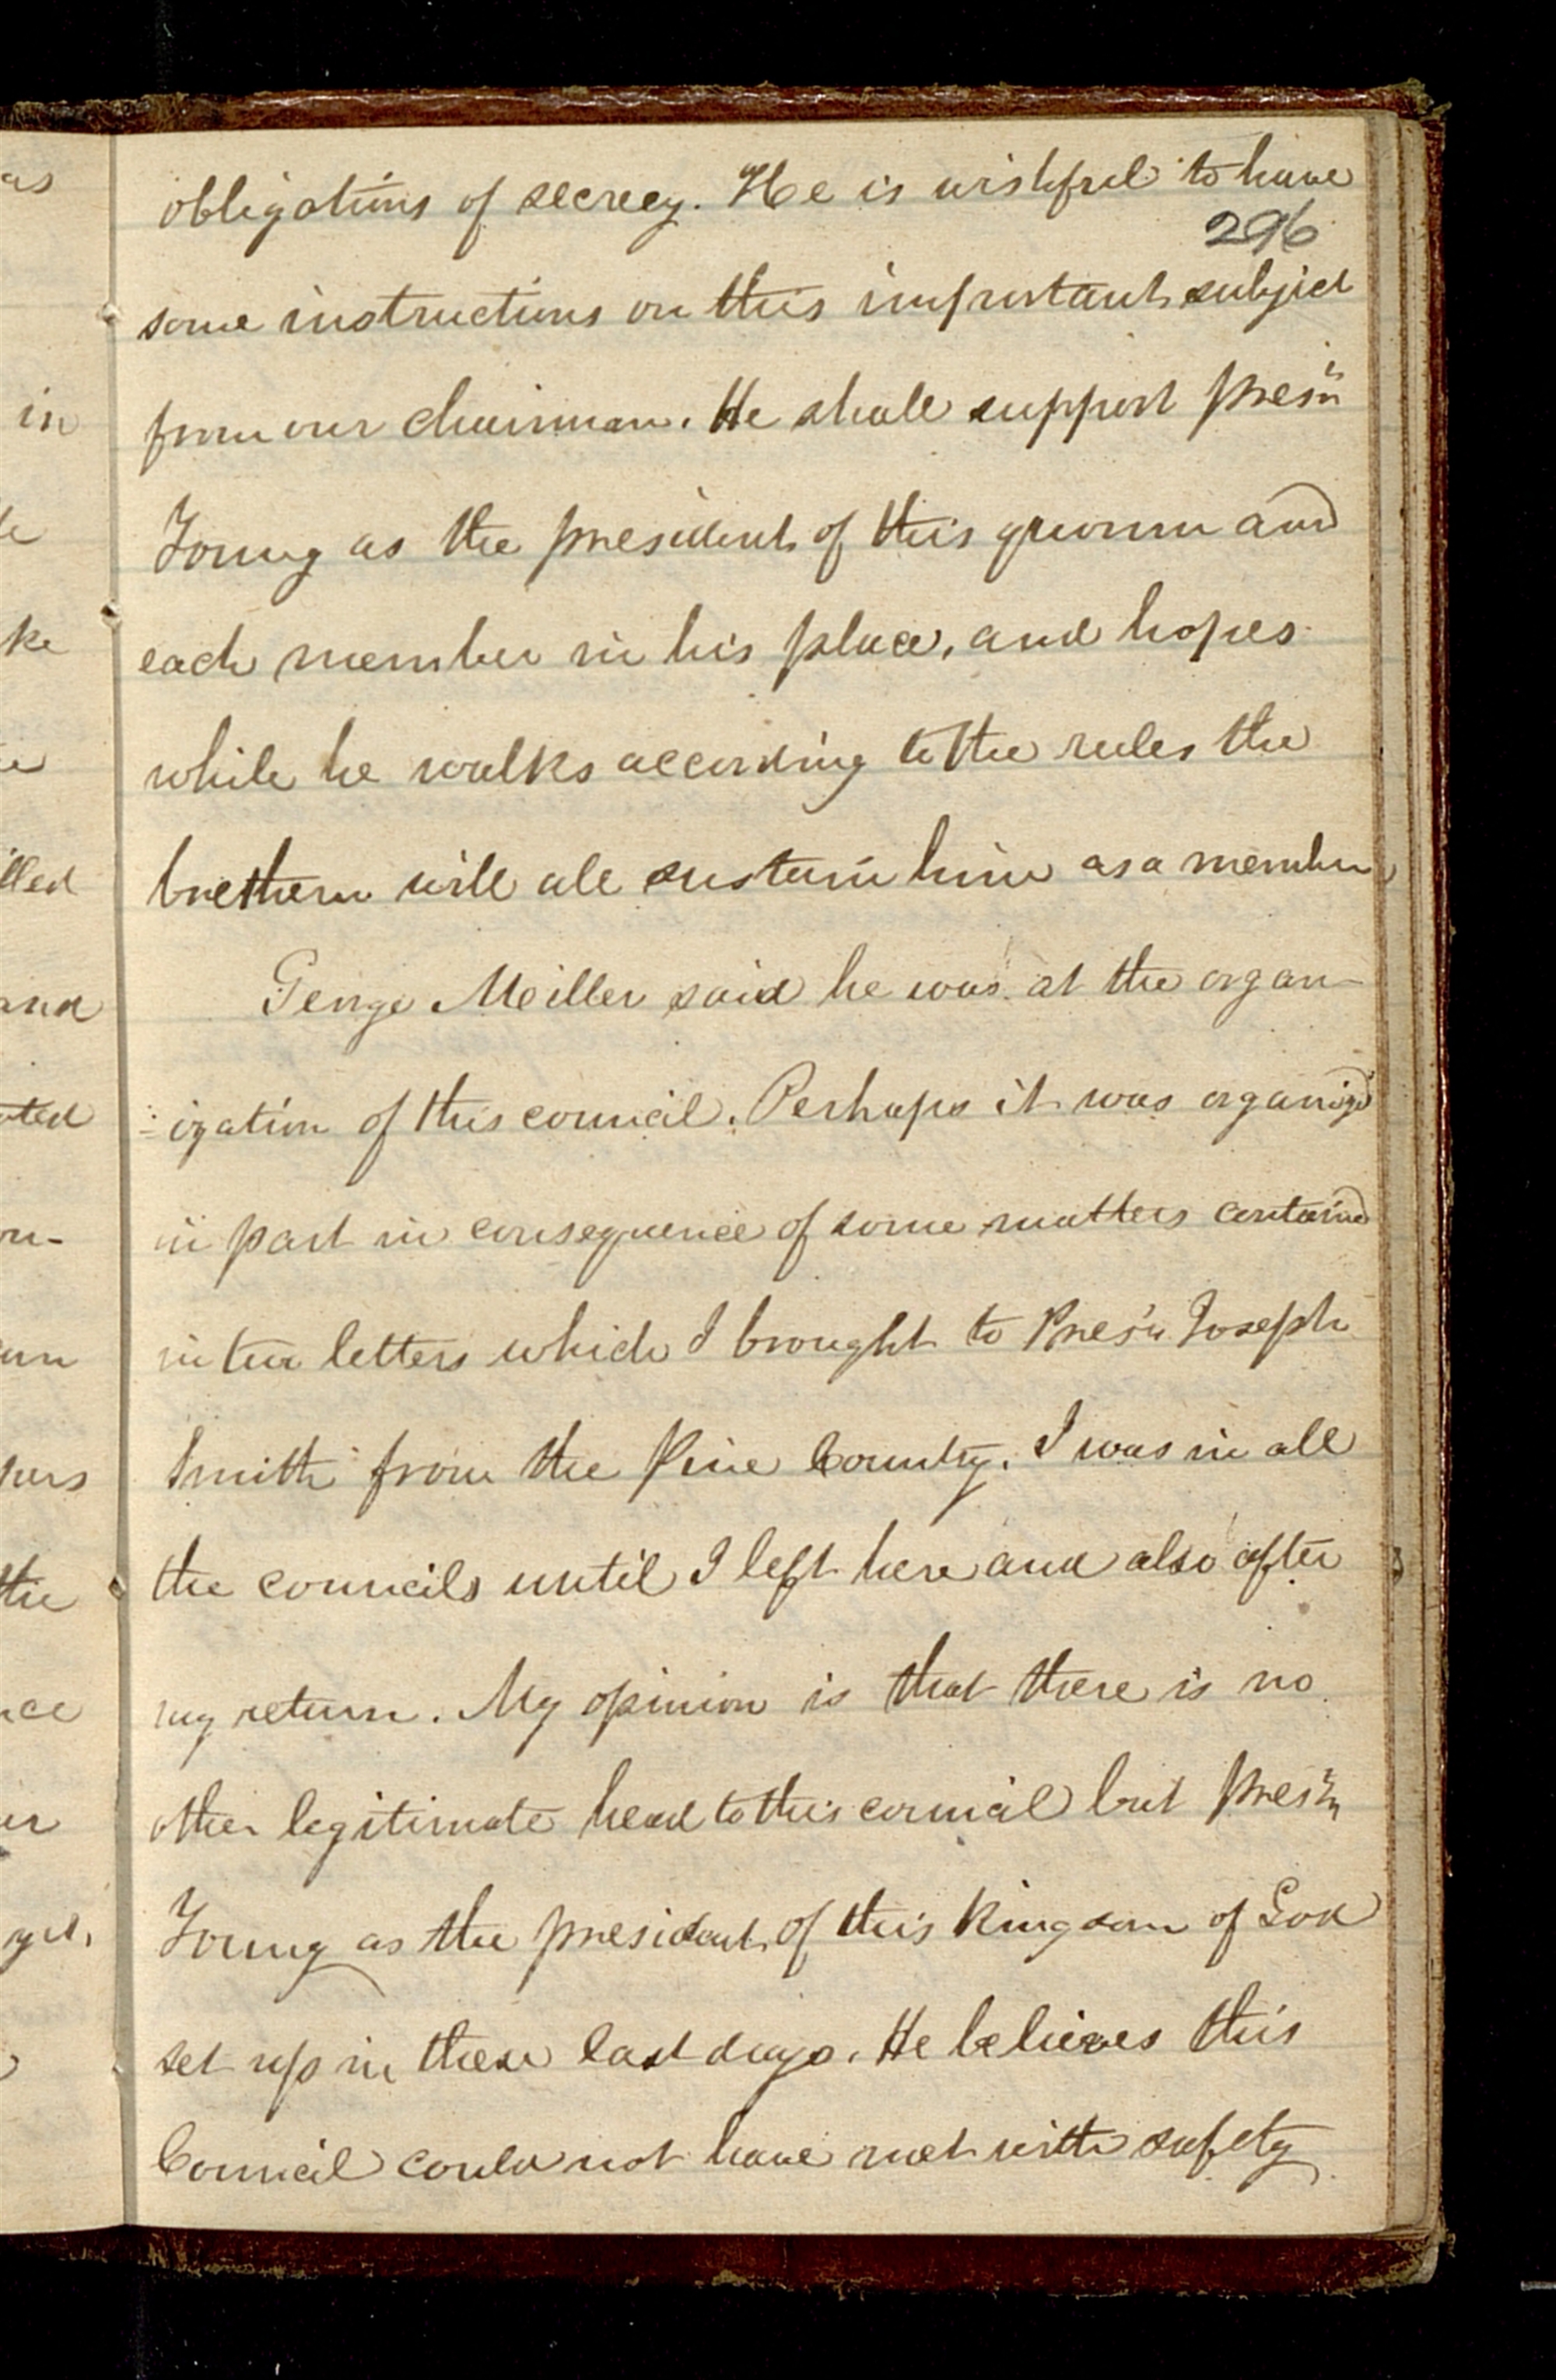 as
in
ke
illed
and
ated
on-
the
nce
obligations of secrecy. He is wishful to have
296
some instructions on this important subject
from our chairman. He shall support pres't
Young as the president of this quorum and
each member in his place, and hopes
while he walks according to the rules the
brethern will all sustain him as a member,
George Miller said he was at the organ-
=ization of this council. Perhaps it was organized
in part in consequence of some matters contained
in the letters which I brought to Pres't Joseph
Smith from the Pine Country. I was in all
the councils until I left here and also after
my return. My opinion is that there is no
other legitimate head to this council but pres't
Young as the president of this Kingdom of God
set up in these last days. He believes this
Council could not have met with safety